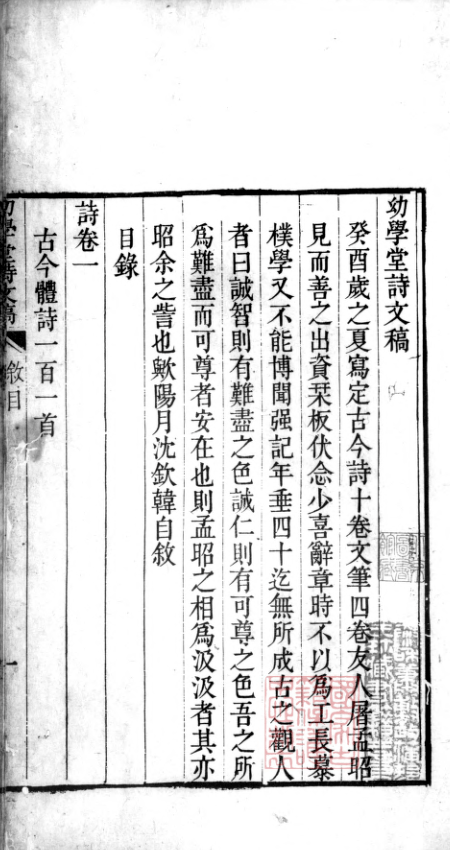 幼學堂詩文稿
癸酉歲之夏寫定古今詩十卷文筆四卷友人屠孟昭
見而善之出資栞板伏念少喜辭章時不以爲工長慕
樸學又不能博聞强記年垂四十迄無所成古之觀人
者曰誠智則有難盡之色誠仁則有可尊之色吾之所
爲難盡而可尊者安在也則孟昭之相爲汲汲者其亦
昭余之訾也歟陽月沈欽韓自敘
目錄
詩卷一
古今體詩一百一首
幼學堂詩文稿
敘目
一